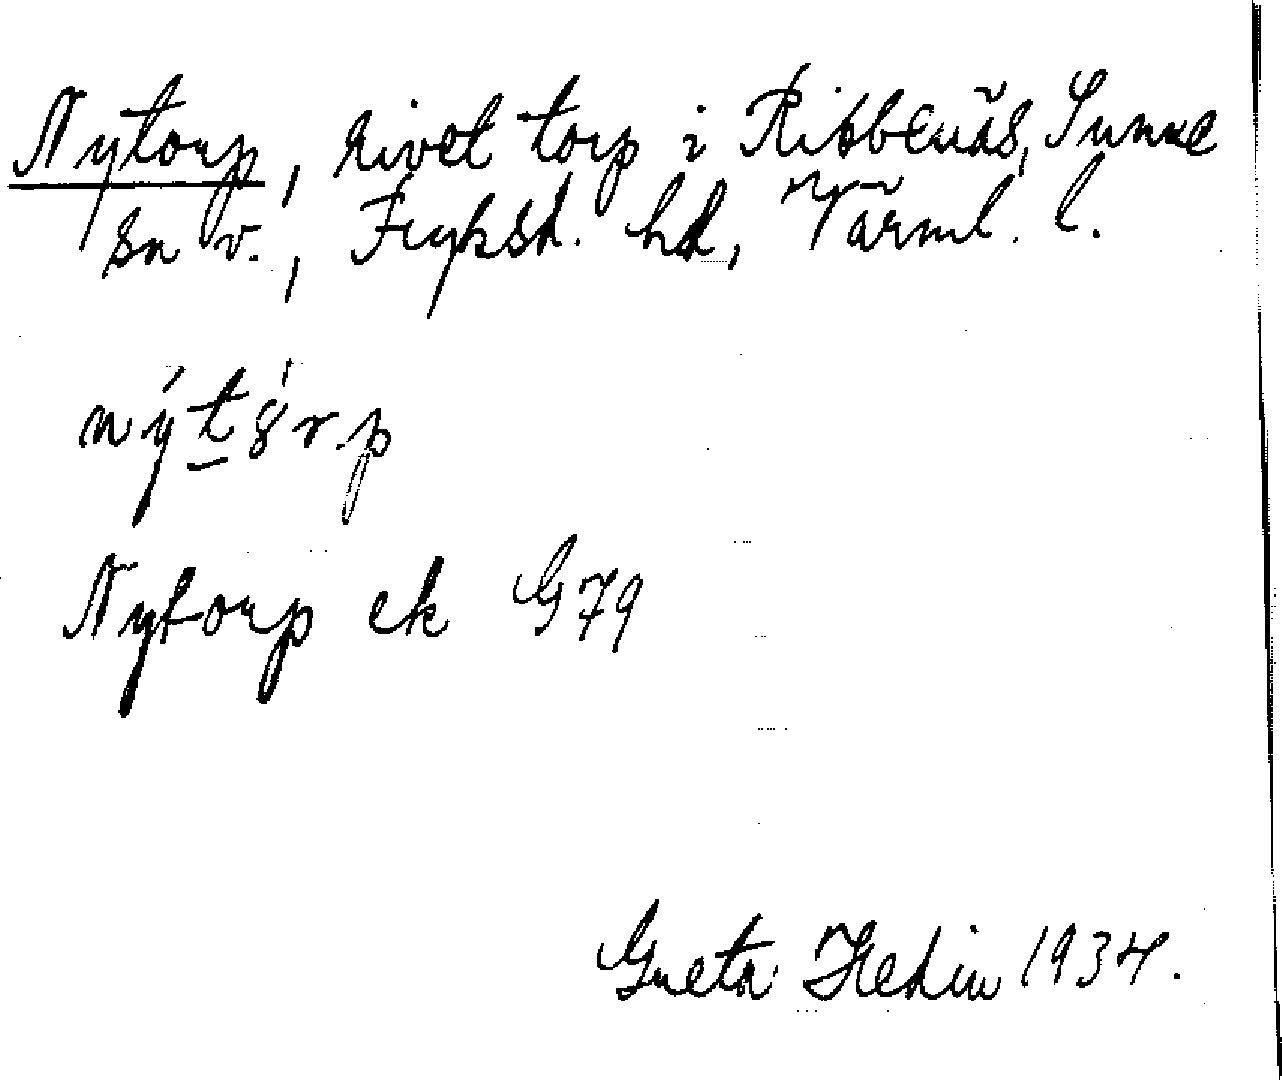 Nytorp, rivet torp i Ribbenäs, Sunne
sn v., Fryksd. hd, Värml. l.
nýt8́r.p
Nytorp ek G79
Greta Hedin 1934.